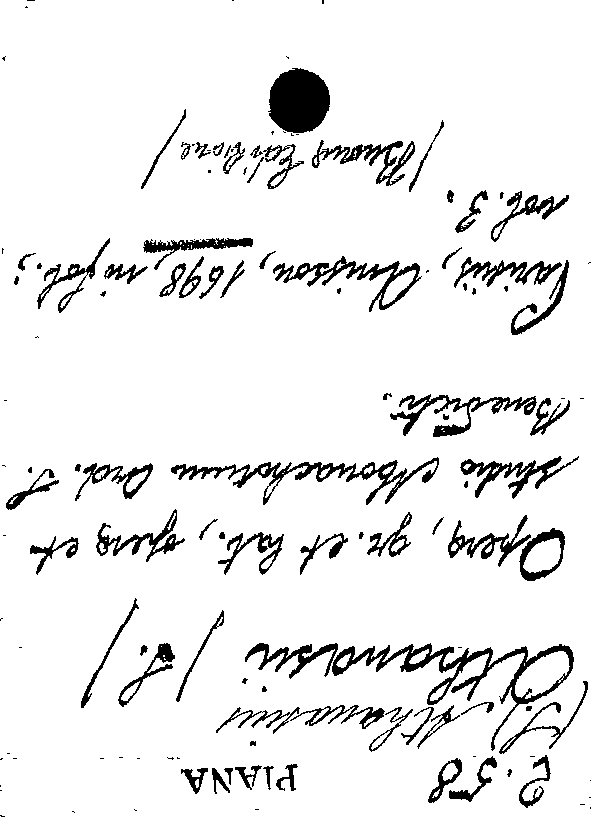 2.58 PIANA
(S.) Athanasius
Athanasii (S.)
Opera, gr. et lat., opera et
studio Monachorum Ord. S.
Benedicti.
Parisiis, Anisson, 1698, in fol.;
vol. 3.
(Buona Edizione)